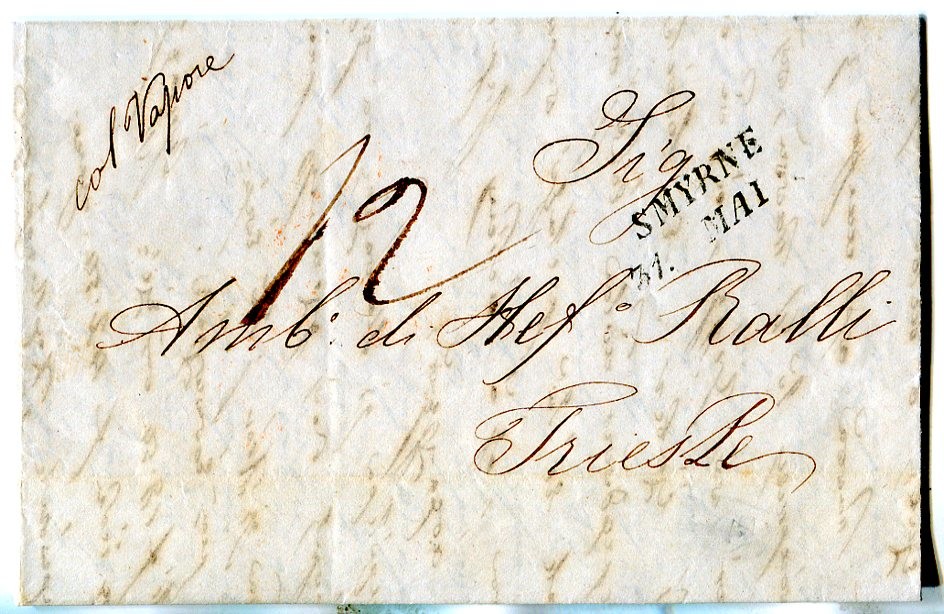 col Vapore
Sig
SMYRNE
31. MAI
12
Amb.º di Stef.º Ralli
Trieste